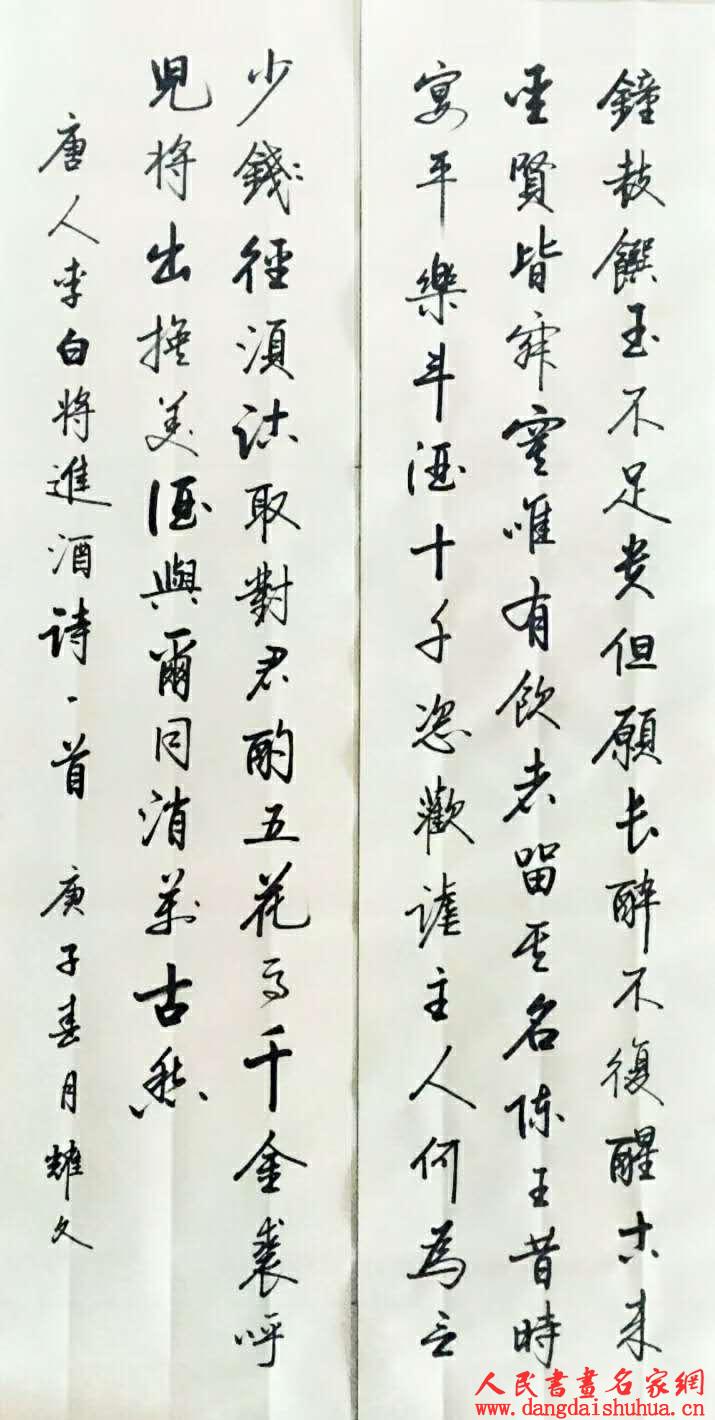 鐘鼓饌玉不足貴但願長醉不復醒古來
聖賢皆寂寞唯有飲者留其名陳王昔時
宴平樂斗酒十千恣歡謔主人何為言
少錢徑須沽取對君酌五花馬千金裘呼
兒將出換美酒與爾同消萬古愁
唐人李白將進酒詩一首 庚子春月耀文
人民書畫名家網
www.dangdaishuhua.cn